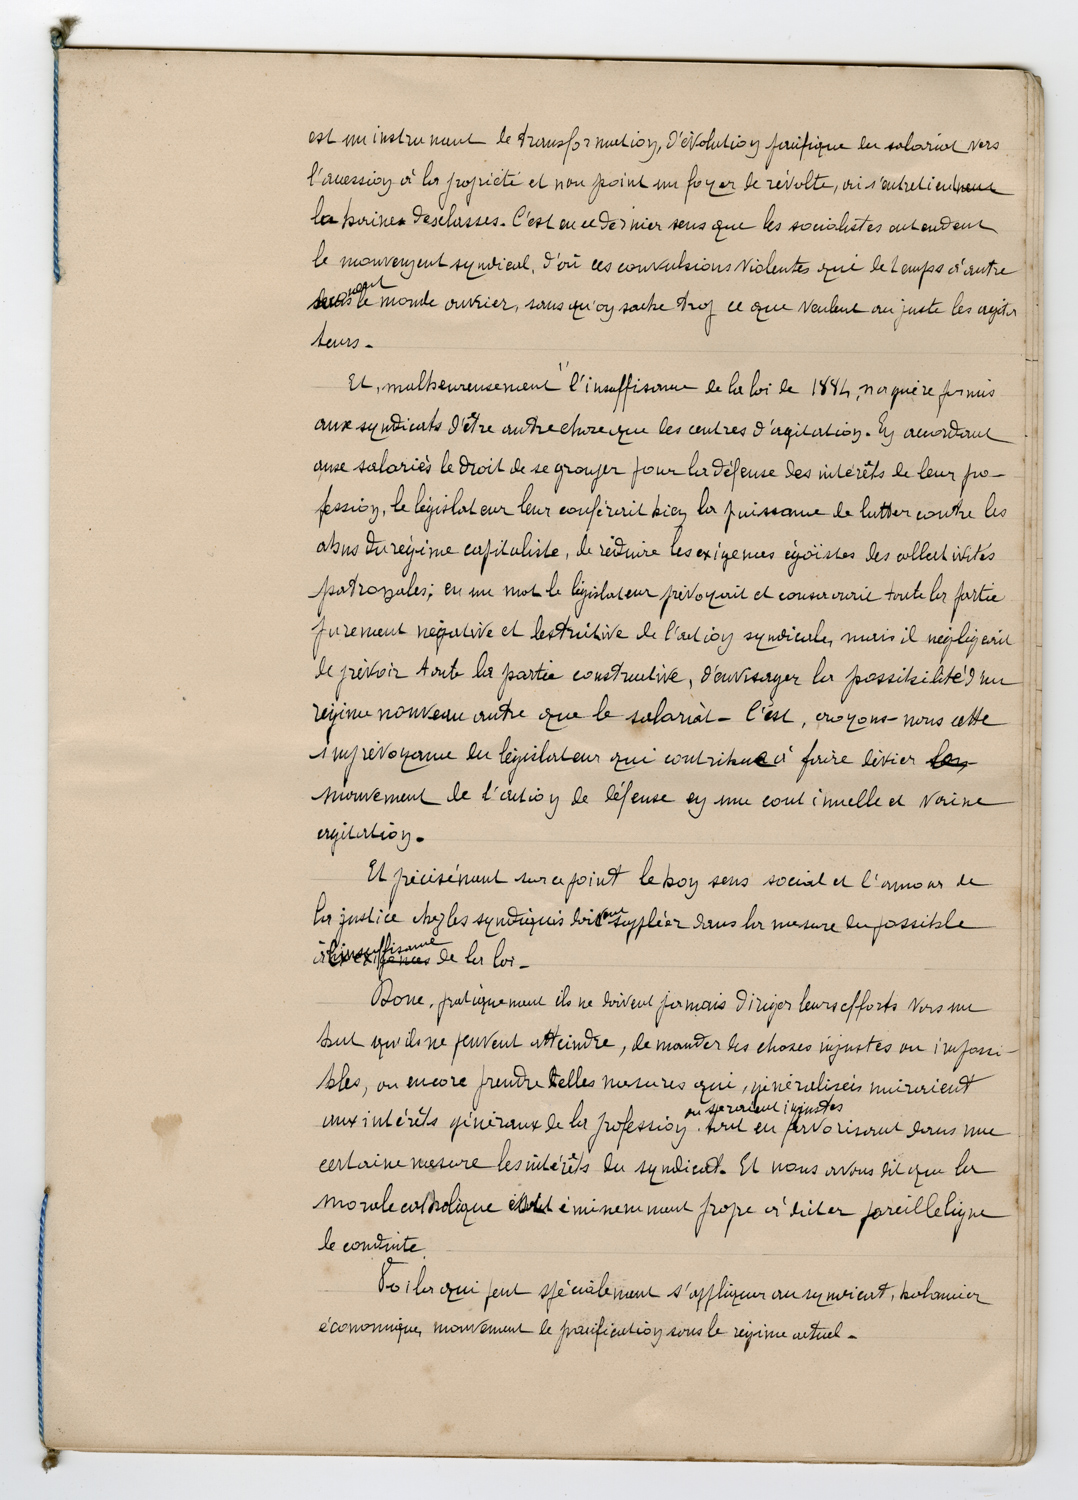 est un instrument de transformation, d'évolution pacifique du salariat vers
l'accession à la propriété et non point un foyer de révolte, où s'entretiennent
la haine des classes. C'est en ce dernier sens que les socialistes entendent
le mouvement syndical, d'où ces convulsions violentes qui de temps à autre
le monde ouvrier, sans qu'on sache trop ce que veulent au juste les agita
teurs.
Et, malheureusement l'insuffisance de la loi de 1884, n'a guère permis
aux syndicats d'être autre chose que des centres d'agitation. En accordant
aux salariés le droit de se grouper pour la défense des intérêts de leur pro-
fession, le législateur leur conférait bien la puissance de lutter contre les
abus du régime capitaliste, de réduire les exigences égoïstes des collectivités
patronales; en un mot le législateur prévoyait et consacrait toute la partie
purement négative et destructive de l'action syndicale, mais il négligeait
de prévoir toute la partie constructive, d'envisager la possibilité d'un
régime nouveau autre que le salariat. C'est, croyons-nous cette
imprévoyance du législateur qui contribue à faire dévier le
mouvement de l'action de défense en une continuelle et vaine
agitation.
Et précisément sur ce point le bon sens social et l'amour de
la justice chez les syndiqués doivent suppléer dans la mesure du possible
à l'insuffisance de la loi.
Donc, pratiquement ils ne doivent jamais diriger leurs efforts vers un
but qu'ils ne peuvent atteindre, demander des choses injustes ou impossi-
bles, ou encore prendre telles mesures qui, généralisées nuiraient
aux intérêts généraux de la profession ou seraient injustes tout en favorisant dans une
certaine mesure les intérêts du syndicat. Et nous avons dit que la
morale catholique était éminemment propre à dicter pareille ligne
de conduite.
Voilà qui peut spécialement s'appliquer au syndicat, balancier
économique, mouvement de pacification sous le régime actuel.